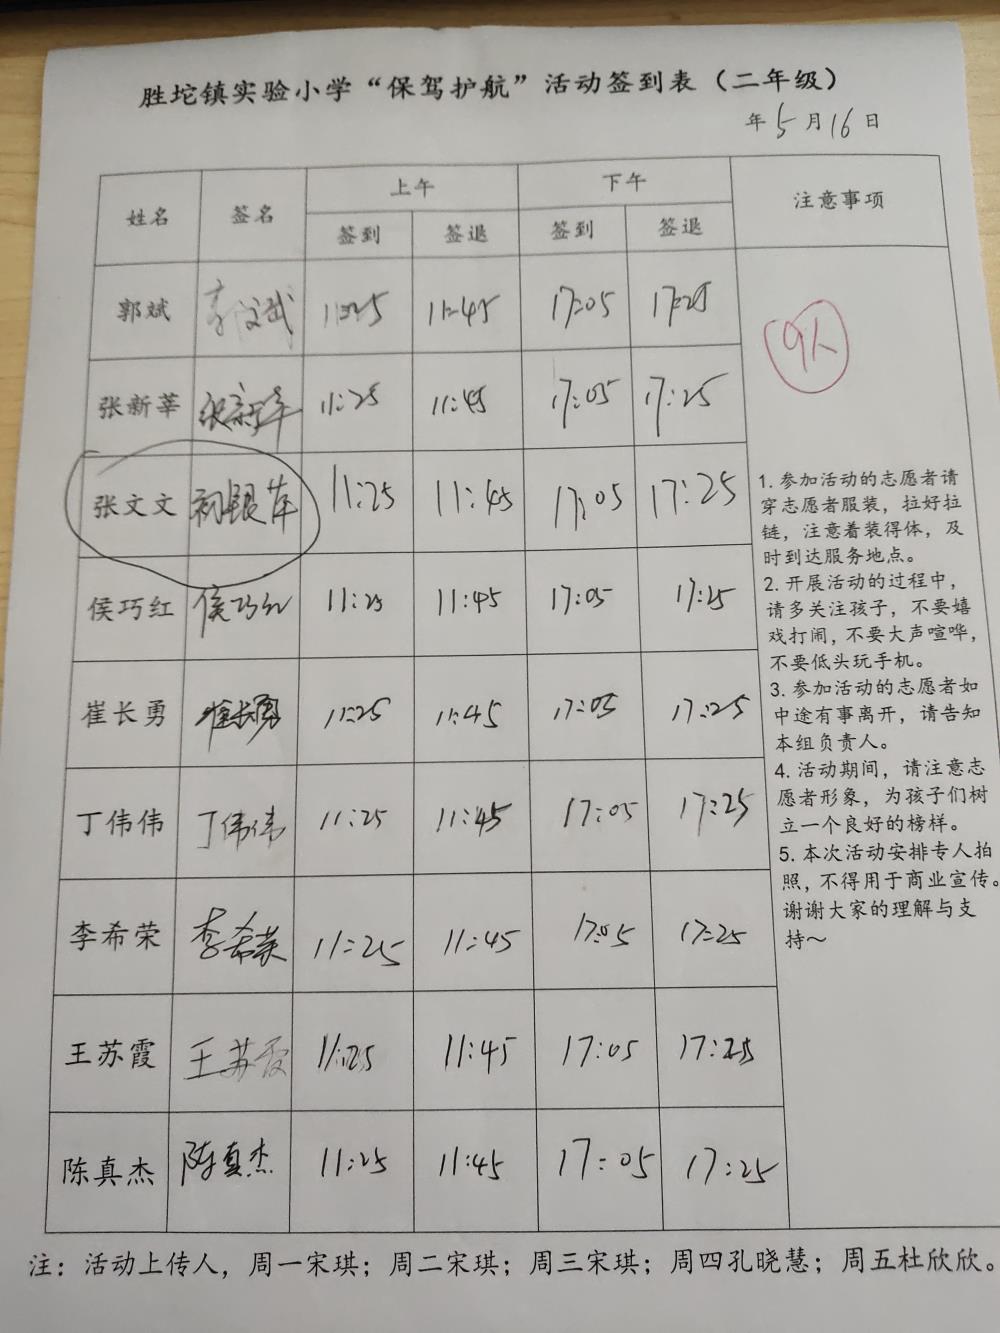 胜坨镇实验小学“保驾护航”活动签到表（二年级）
年 5 月 16 日
姓名 签名 上午 下午 注意事项
签到 签退 签到 签退
郭斌 11:25 11:45 17:05 17:25
9人
张新莘 张新莘 11:25 11:45 17:05 17:25
张文文 初银萍 11:25 11:45 17:05 17:25
侯巧红 侯巧红 11:25 11:45 17:05 17:25
崔长勇 崔长勇 11:25 11:45 17:05 17:25
丁伟伟 丁伟伟 11:25 11:45 17:05 17:25
李希荣 李希荣 11:25 11:45 17:05 17:25
王苏霞 王苏霞 11:25 11:45 17:05 17:25
陈真杰 陈真杰 11:25 11:45 17:05 17:25
1. 参加活动的志愿者请
穿志愿者服装，拉好拉
链，注意着装得体，及
时到达服务地点。
2. 开展活动的过程中，
请多关注孩子，不要嬉
戏打闹，不要大声喧哗，
不要低头玩手机。
3. 参加活动的志愿者如
中途有事离开，请告知
本组负责人。
4. 活动期间，请注意志
愿者形象，为孩子们树
立一个良好的榜样。
5. 本次活动安排专人拍
照，不得用于商业宣传。
谢谢大家的理解与支
持～
注：活动上传人，周一宋琪；周二宋琪；周三宋琪；周四孔晓慧；周五杜欣欣。